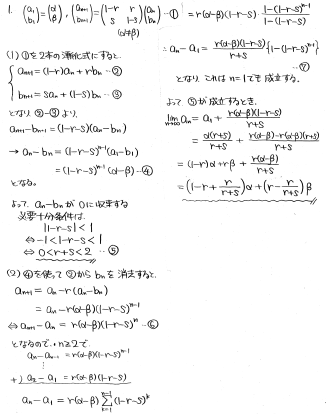 1. (a₁ b₁) = (α β), (aₙ₊₁ bₙ₊₁) = (1-r r s 1-s)(aₙ bₙ) …①
(α≠β)
(1) ①を2本の漸化式にすると、
{ aₙ₊₁ = (1-r)aₙ + r bₙ …②
bₙ₊₁ = s aₙ + (1-s) bₙ …③
となり ②-③より、
aₙ₊₁ - bₙ₊₁ = (1-r-s)(aₙ-bₙ)
→ aₙ-bₙ = (1-r-s)ⁿ⁻¹(a₁-b₁)
= (1-r-s)ⁿ⁻¹(α-β) …④
となる。
よって、aₙ-bₙ が 0に収束する
必要十分条件は
|1-r-s| < 1
⇔ -1 < 1-r-s < 1
⇔ 0 < r+s < 2 …⑤
(2) ④を使って②から bₙ を消去すると、
aₙ₊₁ = aₙ - r(aₙ-bₙ)
= aₙ - r(α-β)(1-r-s)ⁿ⁻¹
⇔ aₙ₊₁ - aₙ = r(α-β)(1-r-s)ⁿ …⑥
となるので、n≧2で
aₙ - aₙ₋₁ = r(α-β)(1-r-s)ⁿ⁻¹
⋮
+) a₂ - a₁ = r(α-β)(1-r-s)
aₙ - a₁ = r(α-β) Σ_{k=1}^{n-1} (1-r-s)ᵏ
= r(α-β)(1-r-s) (1-(1-r-s)ⁿ⁻¹)/(1-(1-r-s))
∴ aₙ - a₁ = (r(α-β)(1-r-s))/(r+s) {1-(1-r-s)ⁿ⁻¹}
…⑦
となり、これは n=1でも成立する。
よって ⑤が成立するとき、
lim_{n→∞} aₙ = a₁ + (r(α-β)(1-r-s))/(r+s)
= (α(r+s))/(r+s) + (r(α-β)-r(α-β)(r+s))/(r+s)
= (1-r)α + rβ + (r(α-β))/(r+s)
= (1-r + r/(r+s))α + (r - r/(r+s))β